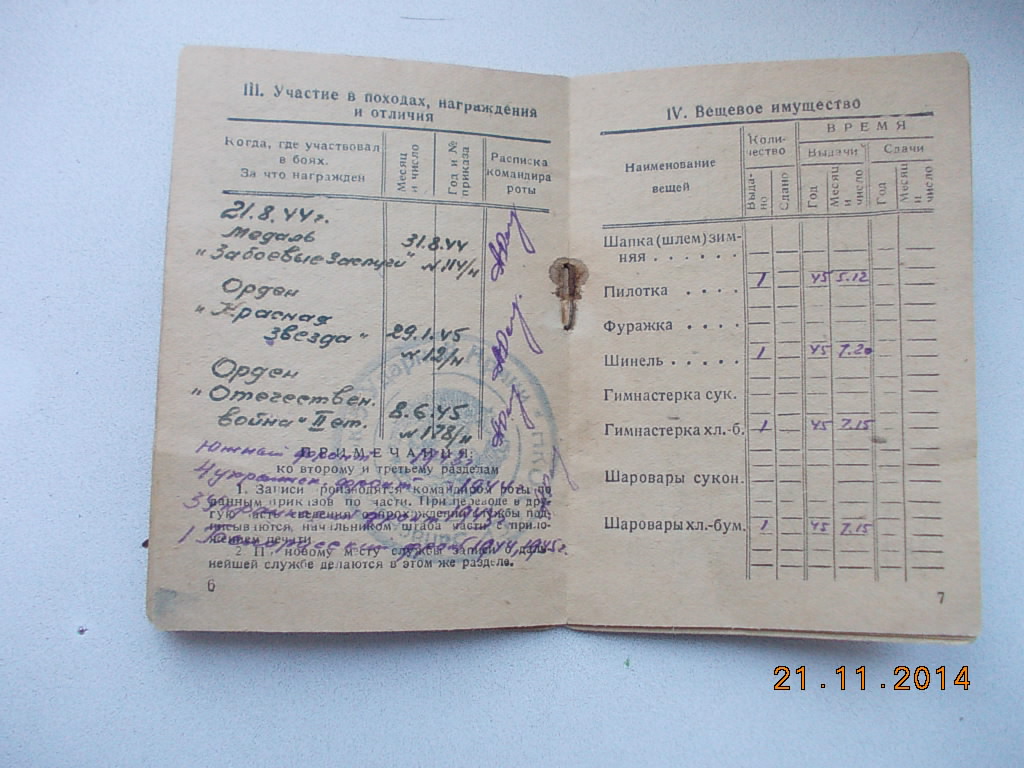 III. Участие в походах, награждения
и отличия
Когда, где участвовал
в боях.
За что награжден
Месяц
и число
Год и №
приказа
Расписка
командира
роты
21.8.44 г.
Медаль
31.8.44
"За боевые заслуги"
№ 114/н
Орден
"Красная
звезда"
29.1.45
№ 12/н
Орден
"Отечествен.
война" II ст.
8.6.45
№ 178/н
Южный фронт
ПРИМЕЧАНИЯ:
ко второму и третьему разделам
4 украинск фронт 1944 г.
1. Записи производятся командиром роты по
данным приказов по части. При переводе в дру-
гую часть сведения о прохождении службы под-
писываются начальником штаба части с прило-
жением печати.
3 фронт
1 фронт (1944, 1945 г.
2. По новому месту службы записи о даль-
нейшей службе делаются в этом же разделе.
6
IV. Вещевое имущество
Наименование
вещей
Коли-
чество
ВРЕМЯ
Выдачи
Сдачи
Выда-
но
Сдано
Год
Месяц
и
число
Год
Месяц
и
число
Шапка (шлем) зим-
няя . . . . . .
Пилотка . . . . 1 45 5.12
Фуражка . . . .
Шинель . . . . . 1 45 7.20
Гимнастерка сук.
Гимнастерка хл.-б. 1 45 7.15
Шаровары сукон.
Шаровары хл.-бум. 1 45 7.15
7
21.11.2014